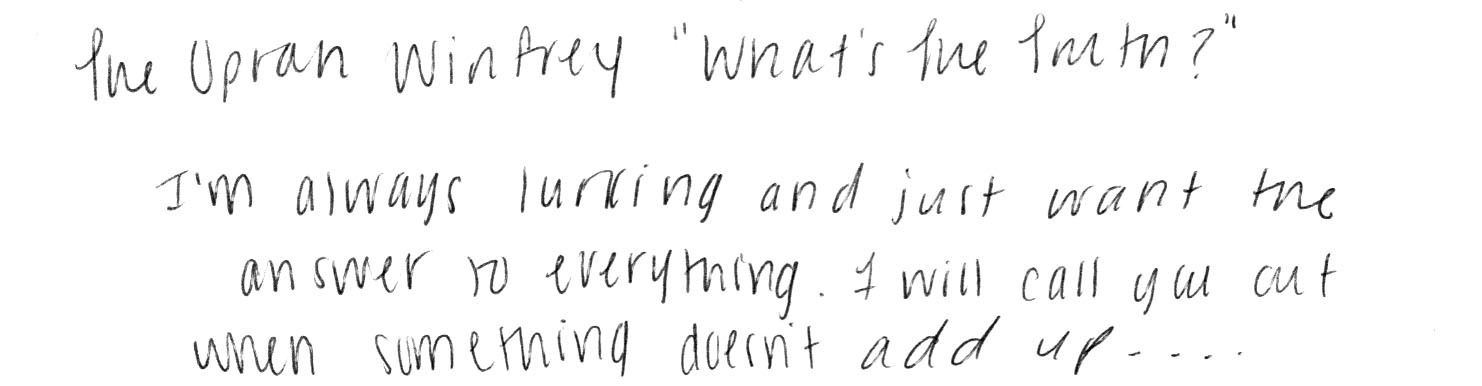 The Oprah Winfrey "What's the Truth?"
I'm always lurking and just want the
answer to everything. I will call you out
when something doesn't add up.....